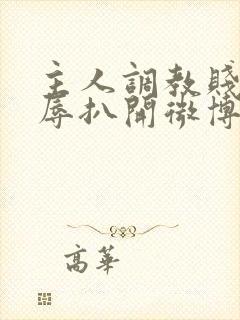 主人調教賤
辱扒開微博
高華